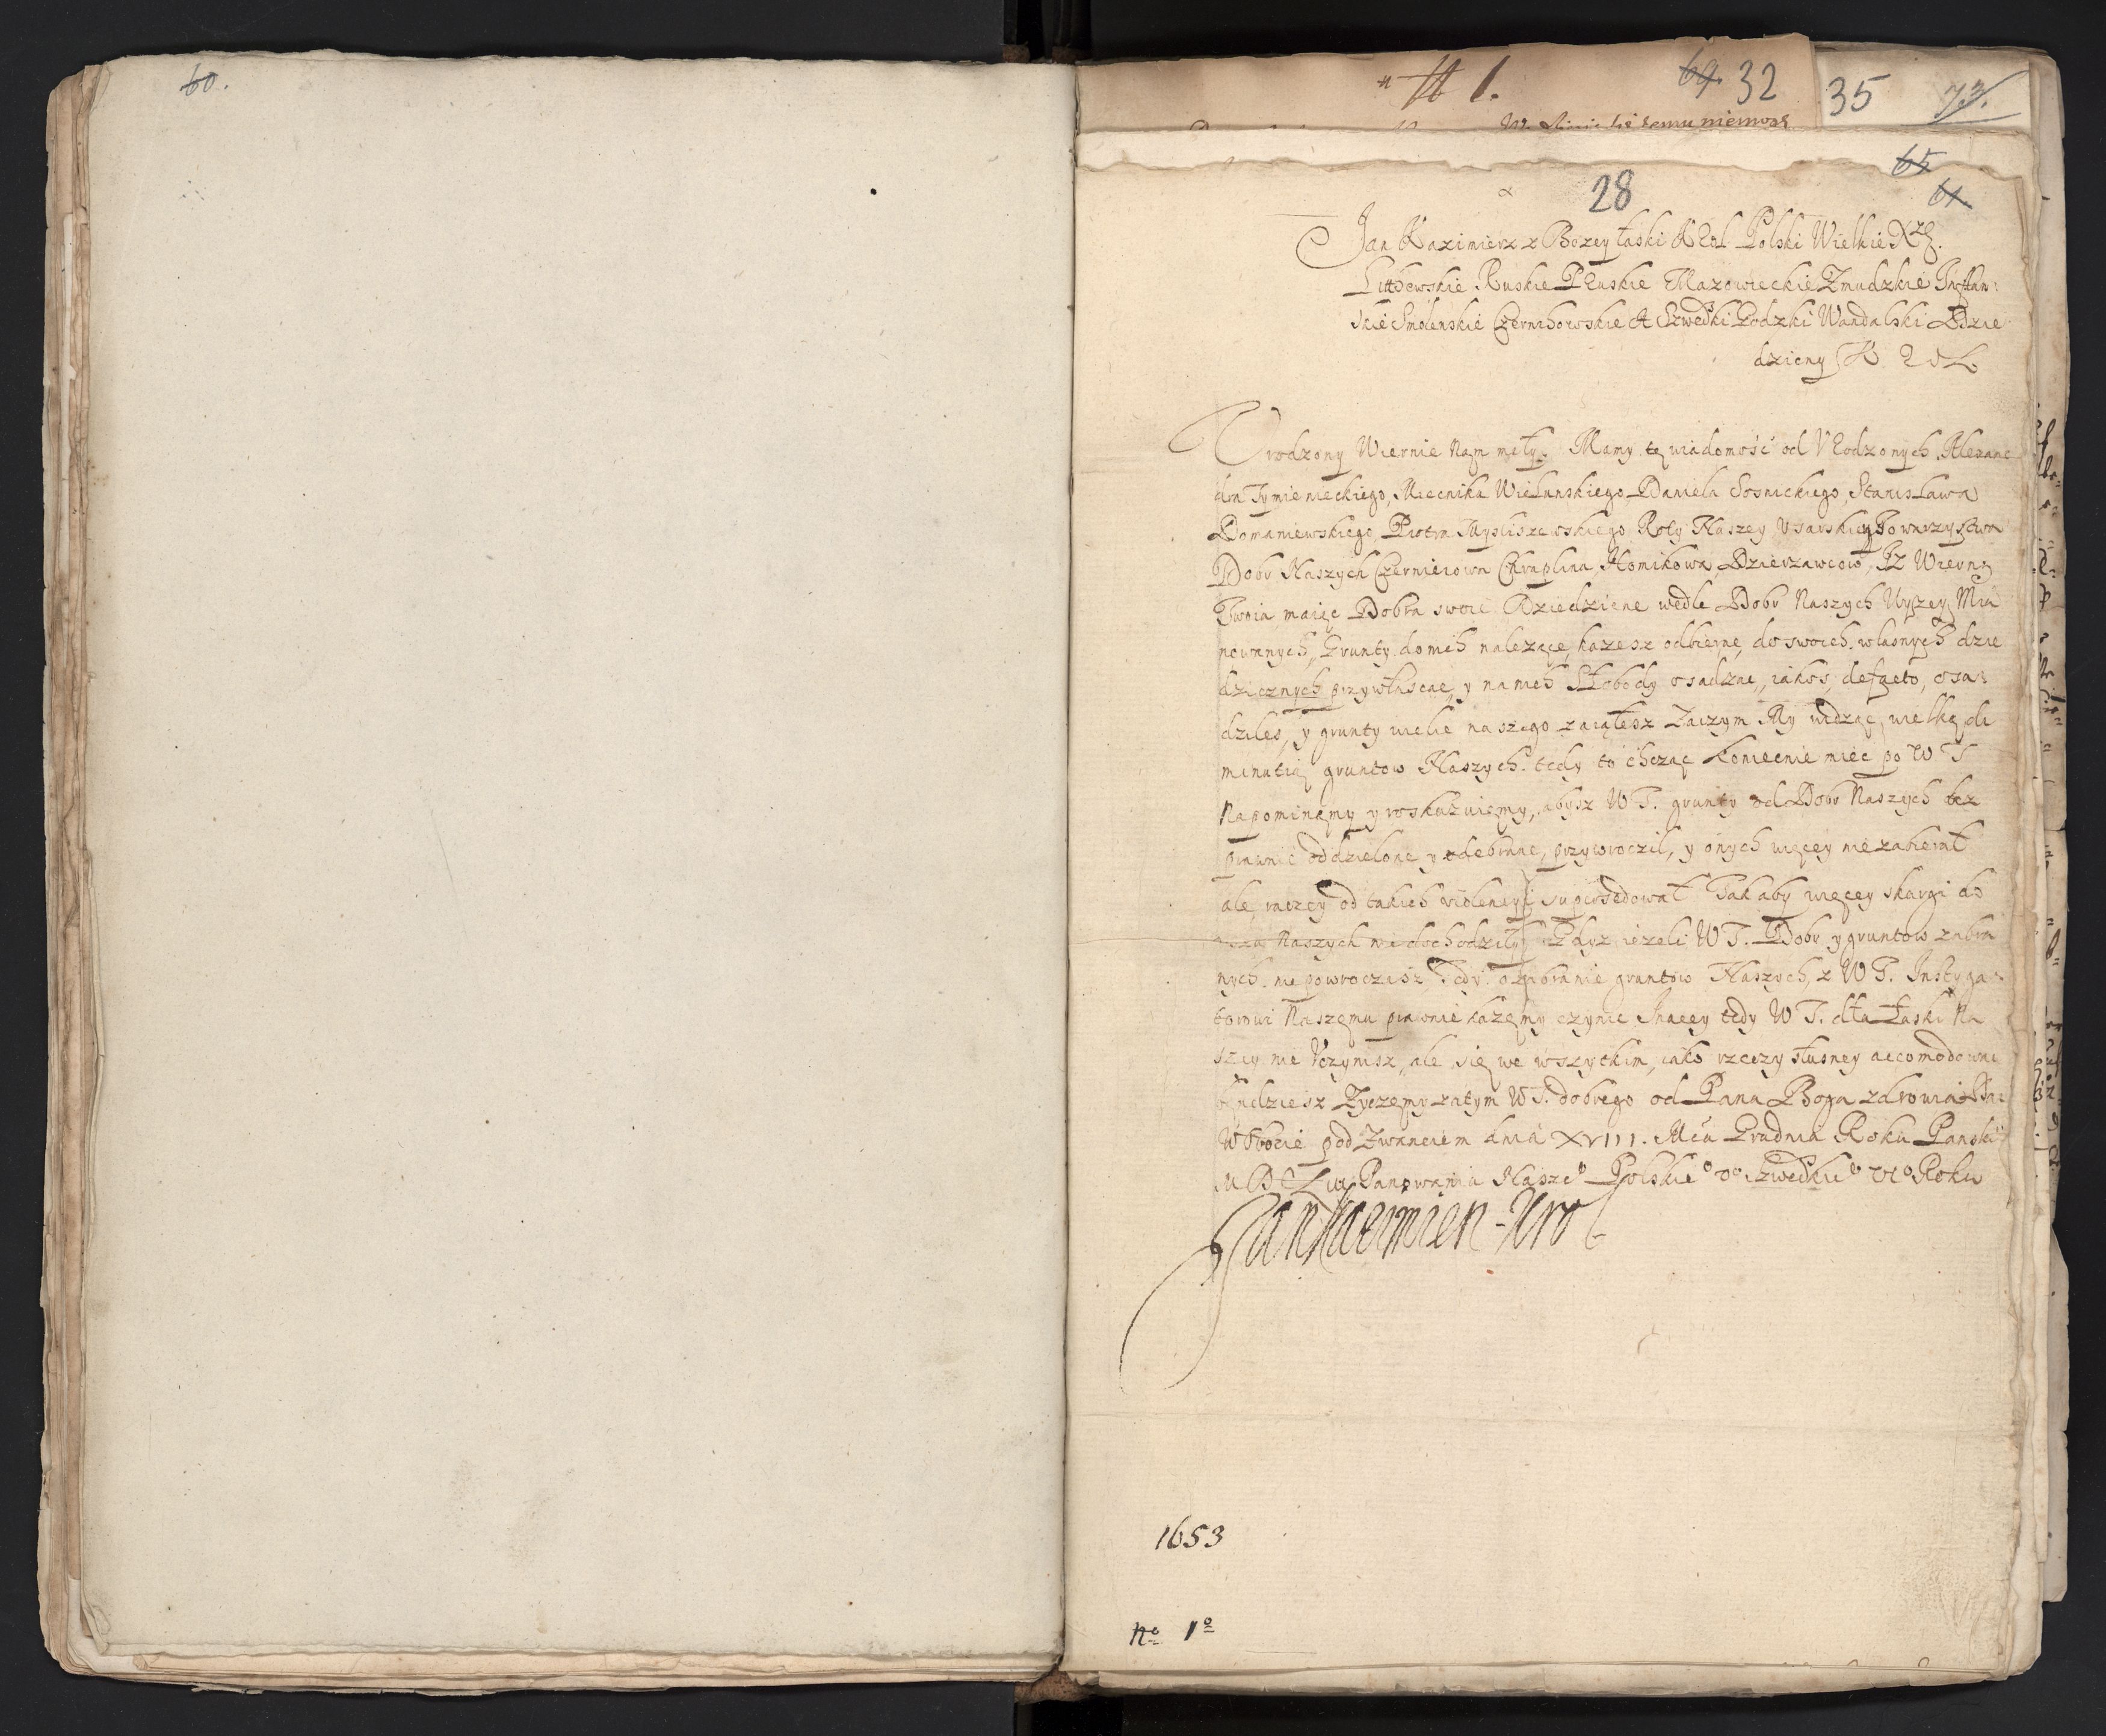 60.
# 1.
69. 32
35
73.
65
61
28
Jan Kazimierz z Bozey łaski Krol Polski Wielkie Xże.
Litthewskie Ruskie Pruskie Mazowieckie Zmudzkie Inflan:
skie Smolenskie Czernihowskie A Szwedzki Godzki Wandalski Dzie
dziczny Krol
Vrodzony Wiernie Nam miły. Mamy tę wiadomość od Vrodzonych Alexan
dra Tymienieckiego, Miecnika Wielunskiego Daniela Sosnickiego, Stanisława
Domaniewskiego, Piotra Mysliszewskiego Roty Naszey Vsarskiey Towarzystwa
Dobr Naszych Czernieiowa Chraplina Homikowa, Dzierzawcow, Iz Wiernę
Twoia maiąc Dobra swoie Dziedziczne wedle Dobr Naszych Wyszey Mia
nownnych, Grunty do nich nalezące, kazesz odbierac, do swoich własnych dzie
dzicznych przywłaszcac, y na nich Słobody osadzac, iakos, defacto, osa:
dziłes, y grunty wiele naszego zaiąłesz Zaczym My widząc wielką di
minutią gruntow Naszych. tedy to chcząc koniecnie miec po W T
Napominamy y roskazuiemy, abysz W T. grunty od Dobr Naszych bez
prawnie oddzielone y odebrane, przywrocził, y onych więcey nie zabierał
ale, raczey od takich violencyi supersedował Tak aby więcey skargi do
Naszych nie dochodziły Gdyz iezeli W T. Dobr y gruntow zabra
nych nie powroczisz, Tedy o zabranie gruntow Naszych, z W T. Instyga:
torowi Naszemu prawnie kazemy czynic Inaczy tedy W T. dla Łaski Na
szey nie Vczynisz, ale się we wszytkim, iako rzeczy słusney accomodowac
będziesz Zyczemy zatym W T. dobrego od Pana Boga zdrowia Dan
W Obozie pod Zwanciem dnia XVIII. Mca Grudnia Roku Panskie
M D C LIII Panowania Naszeo Polskieo vo Szwedkieo vio Roku
Jan Kazimierz Krol
1653
No 1o